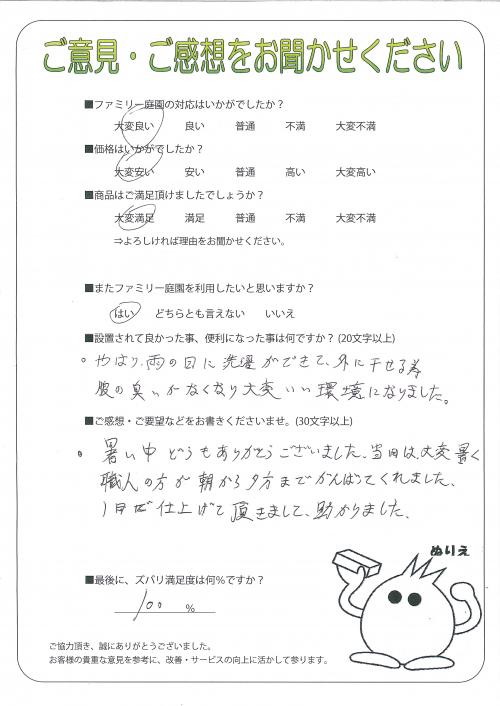 ご意見・ご感想をお聞かせください
■ファミリー庭園の対応はいかがでしたか？
大変良い 良い 普通 不満 大変不満
■価格はいかがでしたか？
大変安い 安い 普通 高い 大変高い
■商品はご満足頂けましたでしょうか？
大変満足 満足 普通 不満 大変不満
⇒よろしければ理由をお聞かせください。
■またファミリー庭園を利用したいと思いますか？
はい どちらとも言えない いいえ
■設置されて良かった事、便利になった事は何ですか？(20文字以上)
。やはり、雨の日に洗濯ができて、外に干せる為
服の臭いがなくなり大変いい環境になりました。
■ご感想・ご要望などをお書きくださいませ。(30文字以上)
。暑い中どうもありがとうございました。当日は、大変暑く
職人の方が朝から夕方までがんばってくれました。
1日で仕上げて頂きまして、助かりました。
ぬりえ
■最後に、ズバリ満足度は何％ですか？
100 ％
ご協力頂き、誠にありがとうございました。
お客様の貴重な意見を参考に、改善・サービスの向上に活かして参ります。